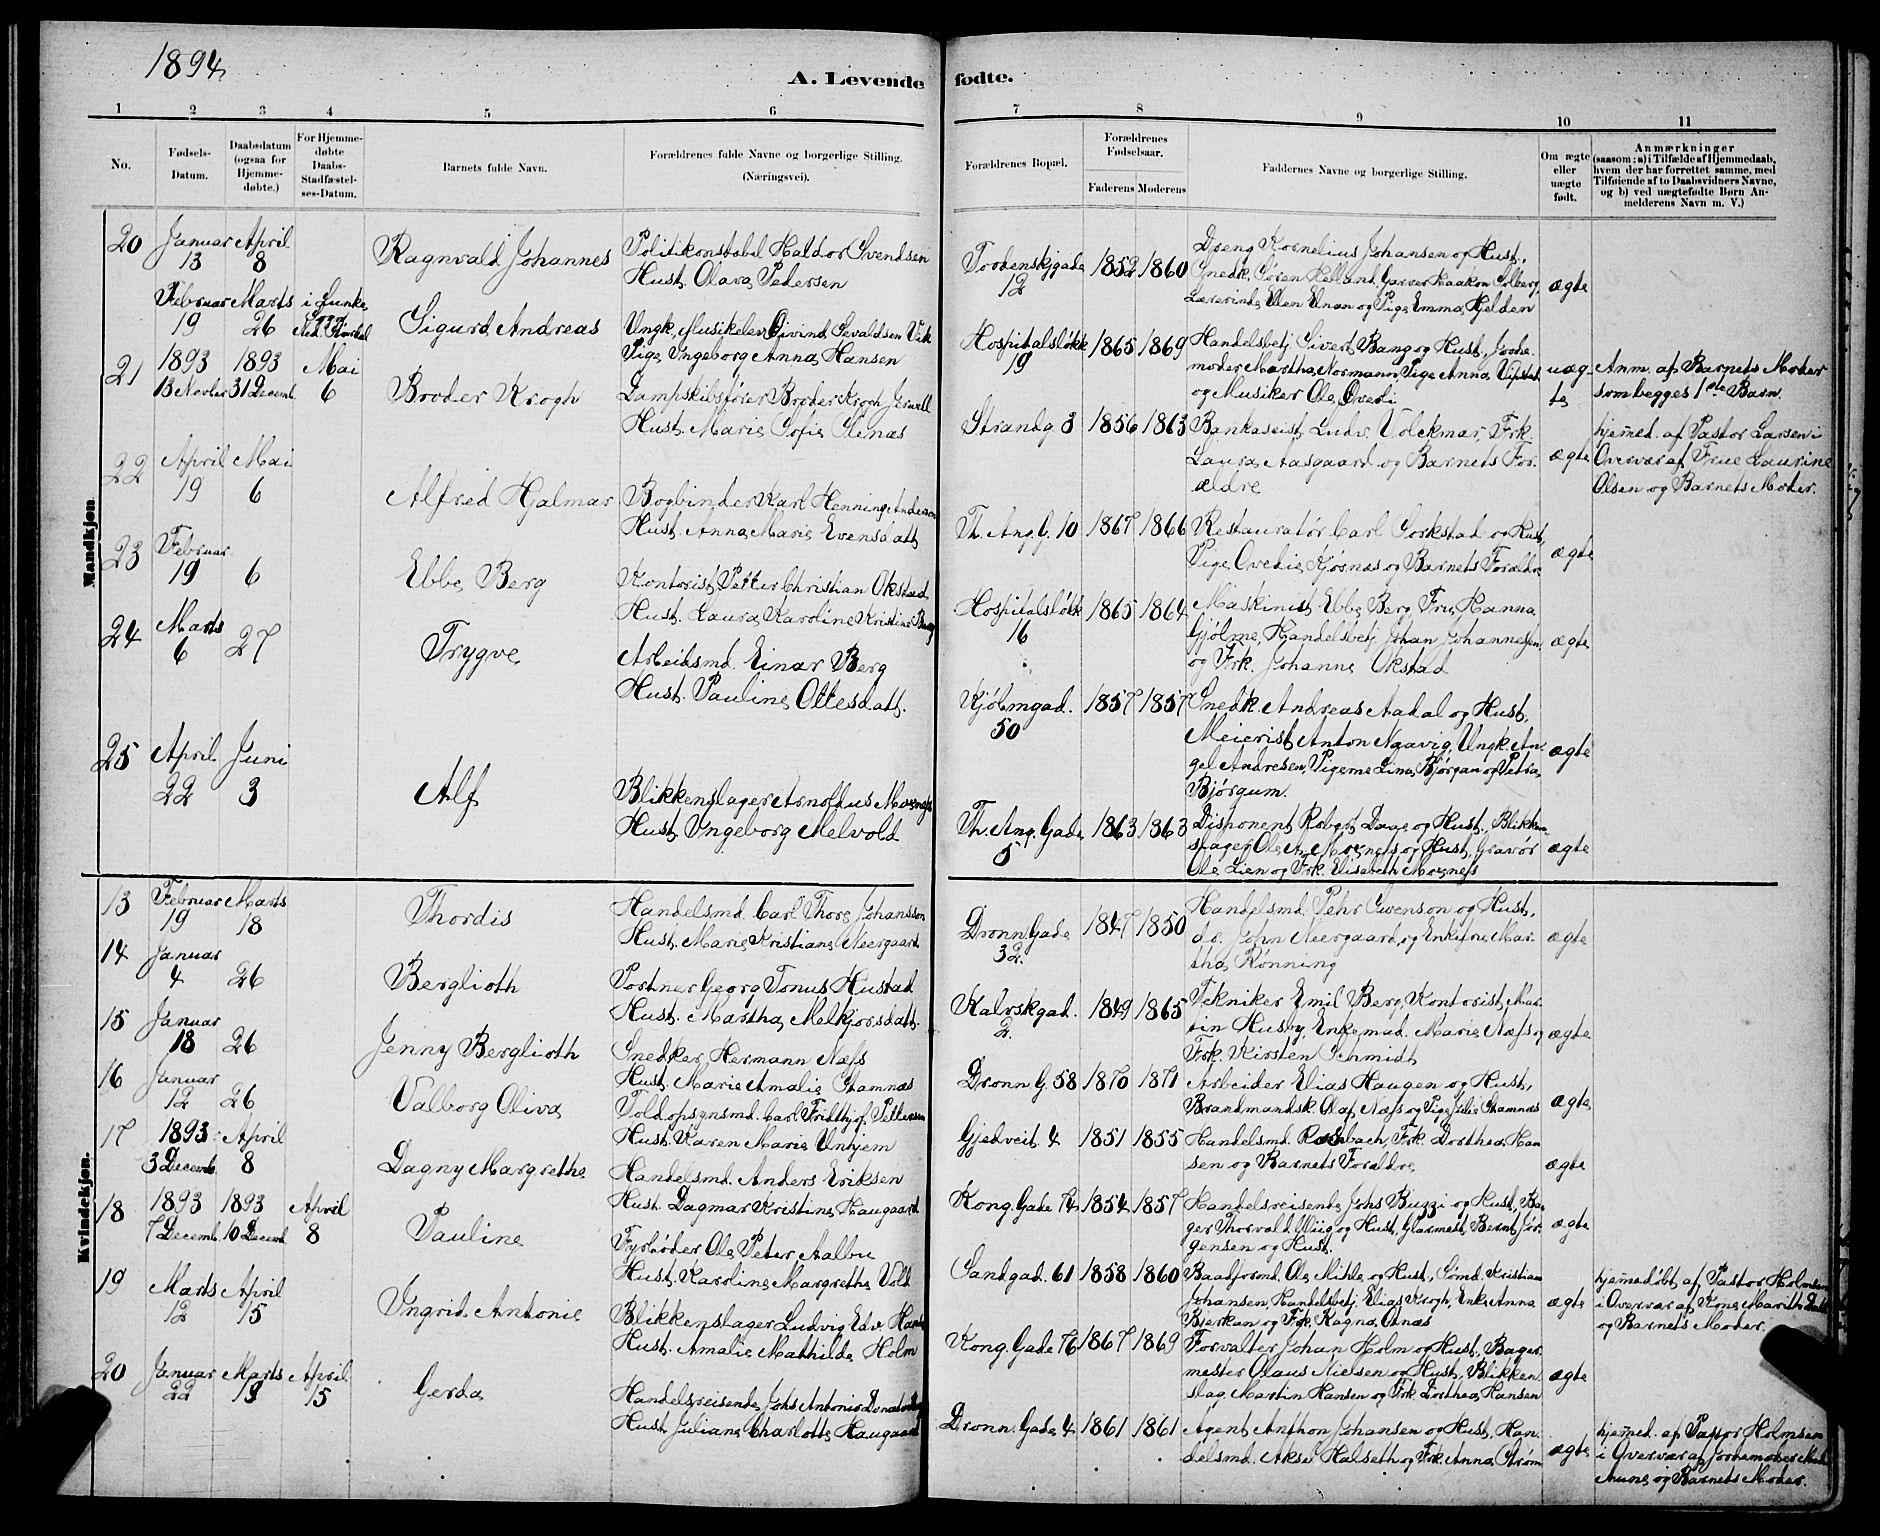 1894
A. Levende fødte.
1 2 3 4 5 6 7 8 9 10 11
No.
Fødsels-Datum.
Daabsdatum (ogsaa for Hjemme-døbte.)
For Hjemme-døbte Daabs-Stadfæstel-ses-Datum.
Barnets fulde Navn.
Forældrenes fulde Navne og borgerlige Stilling.
(Næringsvei).
Forældrenes Bopæl.
Forældrenes Fødselsaar.
Faderens Moderens
Faddernes Navne og borgerlige Stilling.
Om ægte eller uægte født.
Anmærkninger
(saasom: a) i Tilfælde af Hjemmedaab,
hvem der har forrettet samme, med
Tilføiende af to Daabsvidners Navne,
og b) ved uægtefødte Børn An-
melderens Navn m. V.)
Mandkjøn
20 Januar 13 April 8 Ragnvald Johannes
Politikonstabel Haldor Svendsen
Hust. Olava Pedersen
Tordenskjgade 12 1852 1860
Dreng Kornelius Johansen og Hust.,
Snedk. Søren Helland, Garver Haakon Solberg,
Lærerinde Ellen Unan og Pige Emma Hjelden
ægte
Februar 19 Marts 26 Sigurd Andreas
Ungk. Musikelev Eivind Sevaldsen Vik
Pige Ingeborg Anna Hansen
Hospitalsløkk 19 1865 1869
Handelsbetj. Sivert Bang og Hust., Jorde-
moder Martha Normann, Pige Anna
og Musiker Ole Øverli
uæg-
te
Anm. af Barnets Moder
som begges 1ste Barn.
21 1893 13 Novber 1893 31 Decemb. Mai 6 Broder Krogh
Dampskibsfører Broder Krogh Jervell
Hust. Marie Sofie Slenas
Strandg. 3 1856 1863
Bankassist. Ludv. Volckmar, Frk.
Laura Aasgaard og Barnets For-
ældre
ægte
hjemmed. af Pastor Larsen i
Overvær af Frue Laurine
Olsen og Barnets Moder.
22 April 19 Mai 6 Alfred Hjalmar
Bogbinder Karl Henning Anderson
Hust. Anna Marie Evensdatt.
Th. Ang. G. 10 1867 1866
Restauratør Carl Forkstad og Hust.,
Pige Ovedie Kjøsnas og Barnets Forældre
ægte
23 Februar 19 6 Ebbe Berg
Kontorist Petter Christian Okstad
Hust. Laura Karoline Kristine Berg
Hospitalsløkk 16 1865 1864
Maskinist Ebbe Berg, Fru Hanna
Gjølme, Handelsbetj. Johan Johannesen
og Frk. Johanne Okstad
ægte
24 Marts 6 27 Trygve
Arbeidsmd. Einar Berg
Hust. Pauline Ottesdatt.
Kjøbmgad. 50 1857 1857
Snedk. Andreas Aadal og Hust,
Meierist Anton Naavig, Ungk. An-
gel Andresen, Pigerne Lina Bjørgan og Petra
Bjørgum.
ægte
25 April 22 Juni 3 Alf
Blikkenslager Arnoldus Mosness
Hust. Ingeborg Melvold
Th. Ang. Gade 5 1863 1863
Disponent Robert Daae og Hust., Blikken-
slager Ole A. Mosness og Hust, Gravør
Ole Lien og Frk. Elisabeth Mosness
ægte
Kvindekjøn.
13 Februar 19 Marts 18 Thordis
Handelsmd. Carl Thore Johansson
Hust. Marie Kristiane Neergaard
Dronn. Gade 32. 1847 1850
Handelsmd. Pehr Swenson og Hust,
do. John Neergaard og Enkefrue Mar-
tha Rønning
ægte
14 Januar 4 26 Berglioth
Portner Georg Tonus Hustad
Hust. Martha Melkjorsdatt.
Kalvskgad. 2. 1849 1865
Tekniker Emil Berg, Kontorist Mar-
tin Husby, Enkemad. Marie Næss og
Frk. Kirsten Schmidt
ægte
15 Januar 18 26 Jenny Berglioth
Snedker Hermann Næss
Hust. Marie Amalie Stamnæs
Dronn G. 58 1870 1871
Arbeider Elias Haugen og Hust,
Brandmandsk. Olaf Næss og Pige Julie Stamnæs
ægte
16 Januar 12 26 Valborg Oliva
Toldopsynsmd. Carl Fridthjof Pettersen
Hust. Karen Marie Unhjem
Gjedveit 4 1851 1855
Handelsmd. Rosbach, Frk. Dorthea Han
sen og Barnets Forældre
ægte
17 1893 3 Decemb. April 8 Dagny Margrethe
Handelsmd. Anders Eriksen
Hust. Dagmar Kristine Haugaard
Kong. Gade 74 1854 1857
Handelsreisende Johs Buzzi og Hust, Ba-
ger Thorvald Wiig og Hust, Glarmest. Bernt Jør-
gensen og Hust.
ægte
18 1893 7 Decemb. 1893 10 Decemb. April 8 Pauline
Fyrbøder Ole Peter Aalbu
Hust. Karoline Margrethe Vold
Sandgad. 61 1858 1860
Baadformd. Ole Mihle og Hust., Sømd. Kristian
Johansen, Handelsbetj. Elias Krogh, Enke Anna
Bjerkan og Frk. Ragna Otnæs
ægte
hjemmedøbt af Pastor Holmsen
i Overvær af Kone Marith
og Barnets Moder.
19 Marts 12 April 15 Ingrid Antonie
Blikkenslager Ludvig Edv. Hansen
Hust. Amalie Mathilde Holm
Kong. Gade 76 1867 1869
Forvalter Johan Holm og Hust., Bager-
mester Olaus Nielsen og Hust, Blikken-
slag. Martin Hansen og Frk Dorthea Hansen
ægte
20 Januar 22 Marts 13 April 15 Gerda
Handelsreisende Johs Antonio
Hust. Juliane Charlotte Haugaard
Dronn. Gade 4 1861 1861
Agent Anthon Johansen og Hust, Han-
delsmd. Aksel Halseth og Frk. Anna Strøm
ægte
hjemmed. af Pastor Holmsen
i Overvær af Jordemoder
og Barnets Moder.